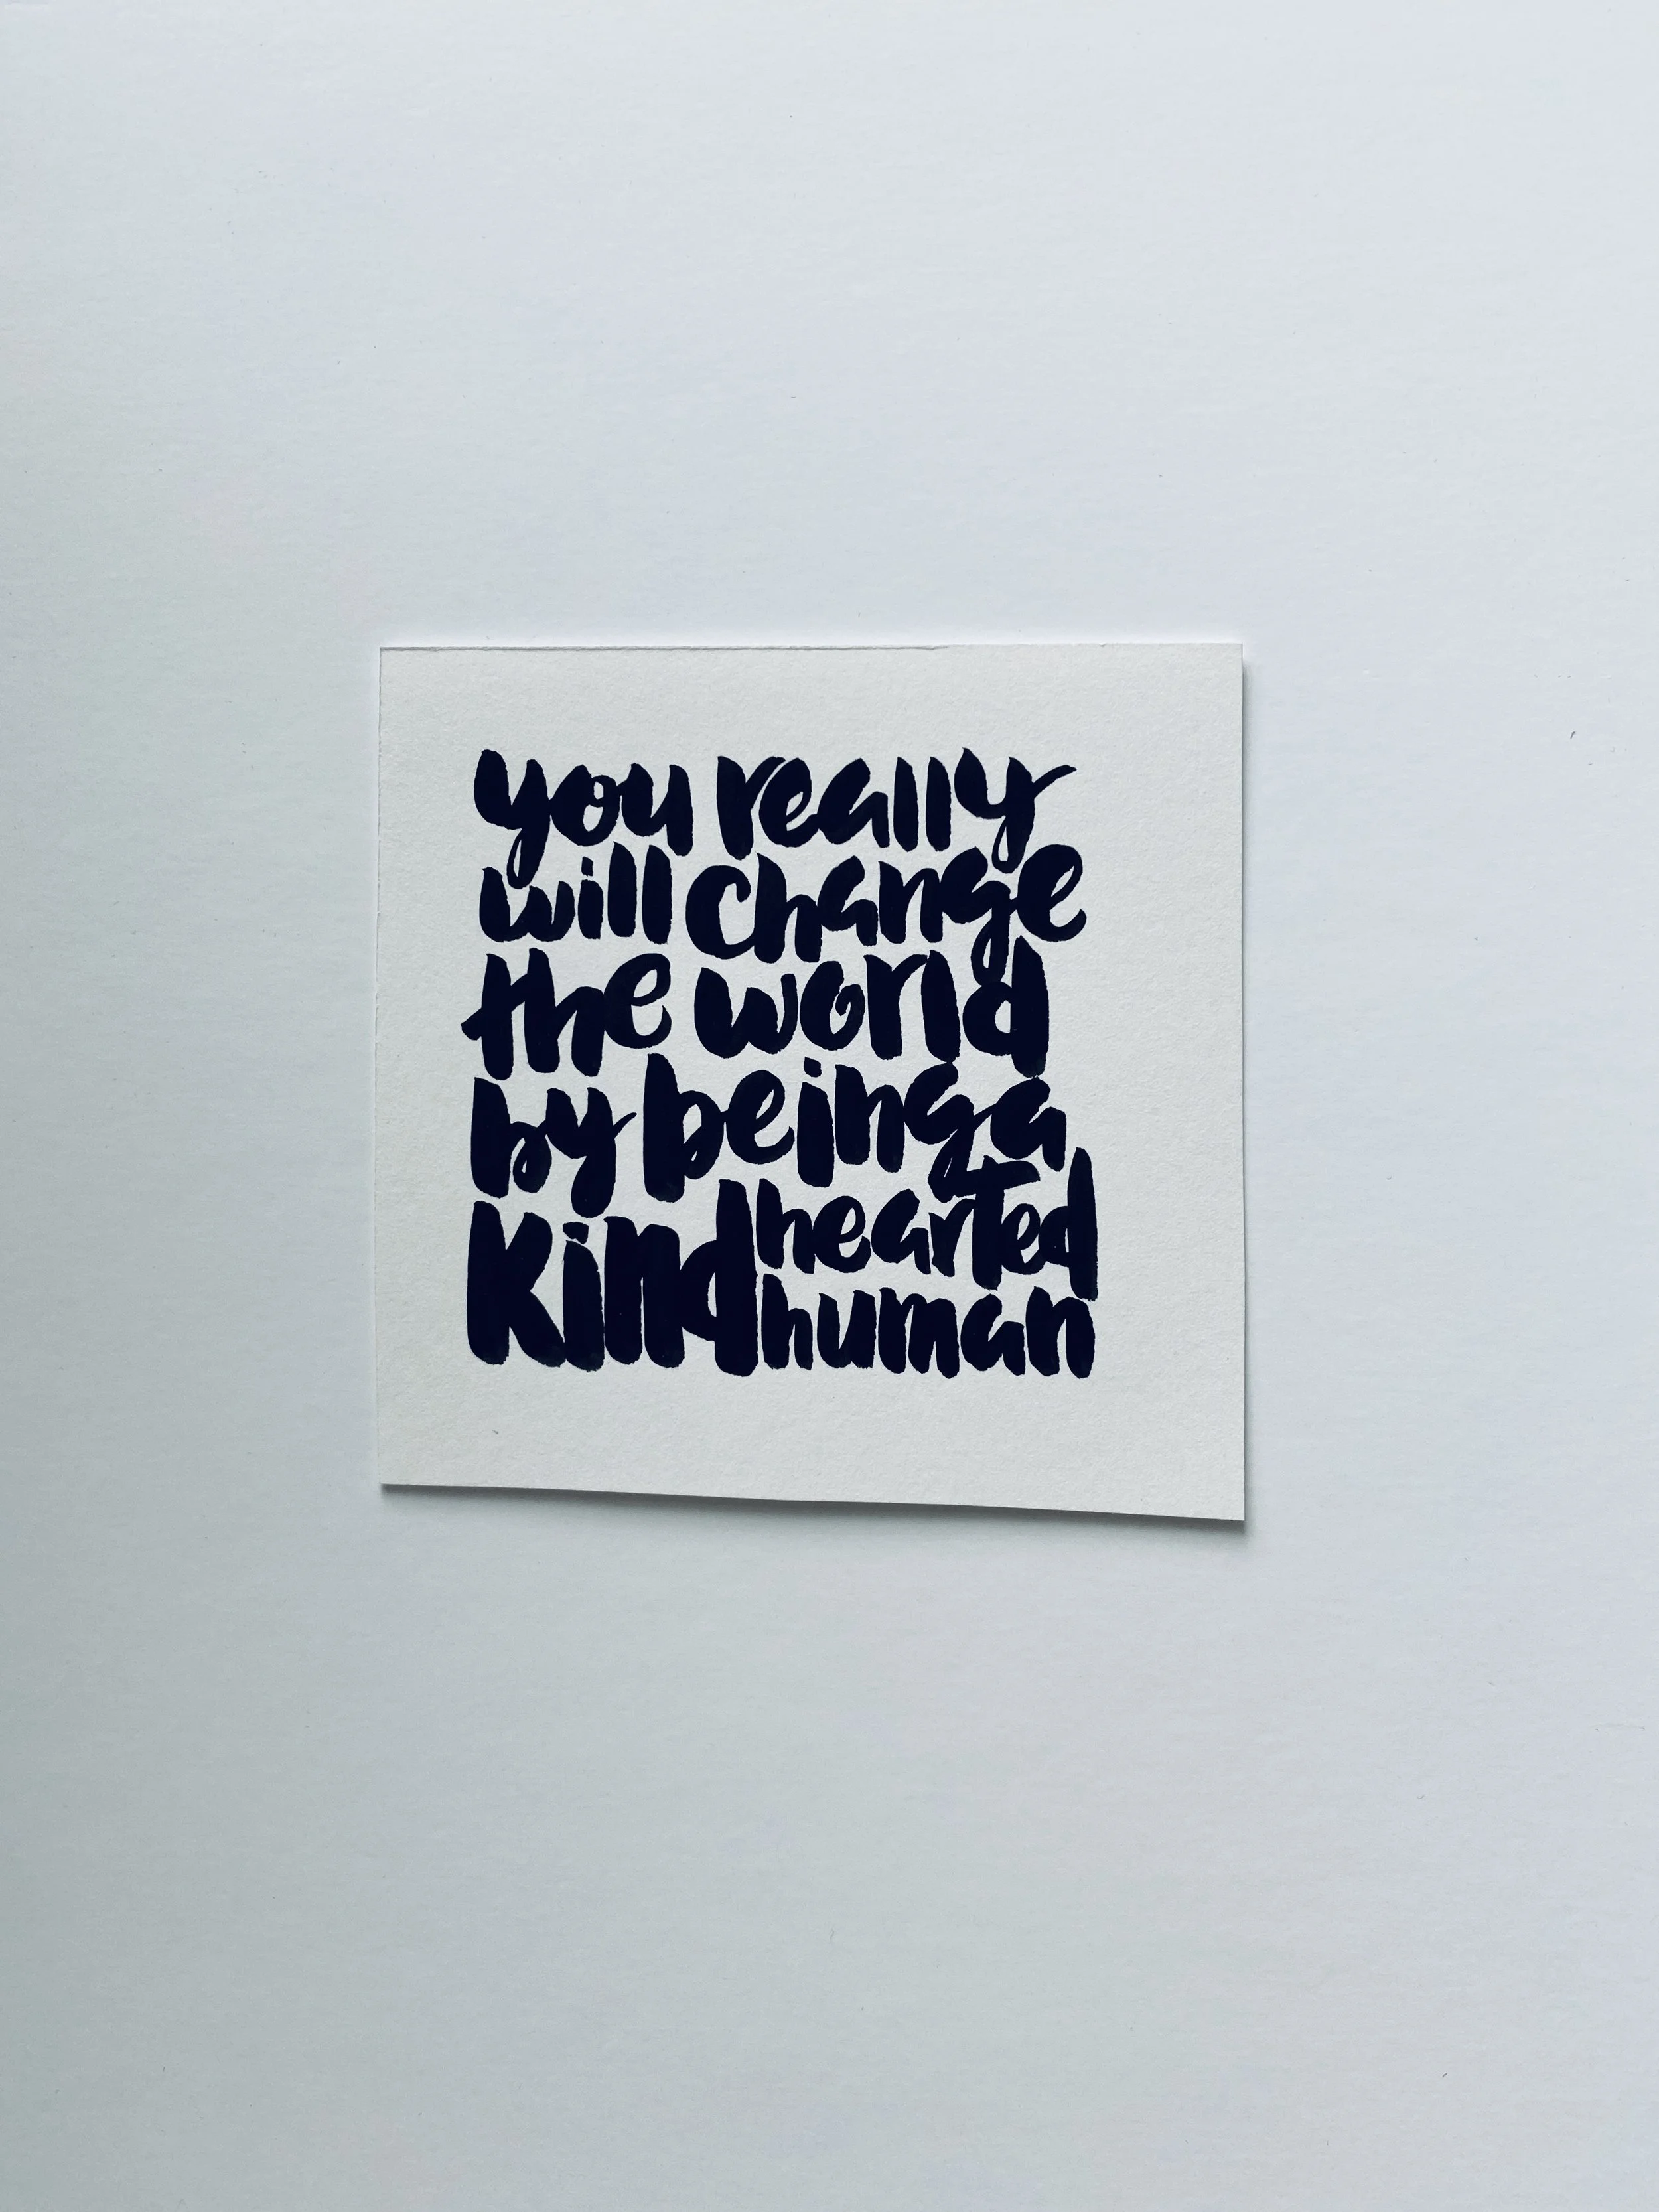 you really
will change
the world
by being a
kind hearted
human